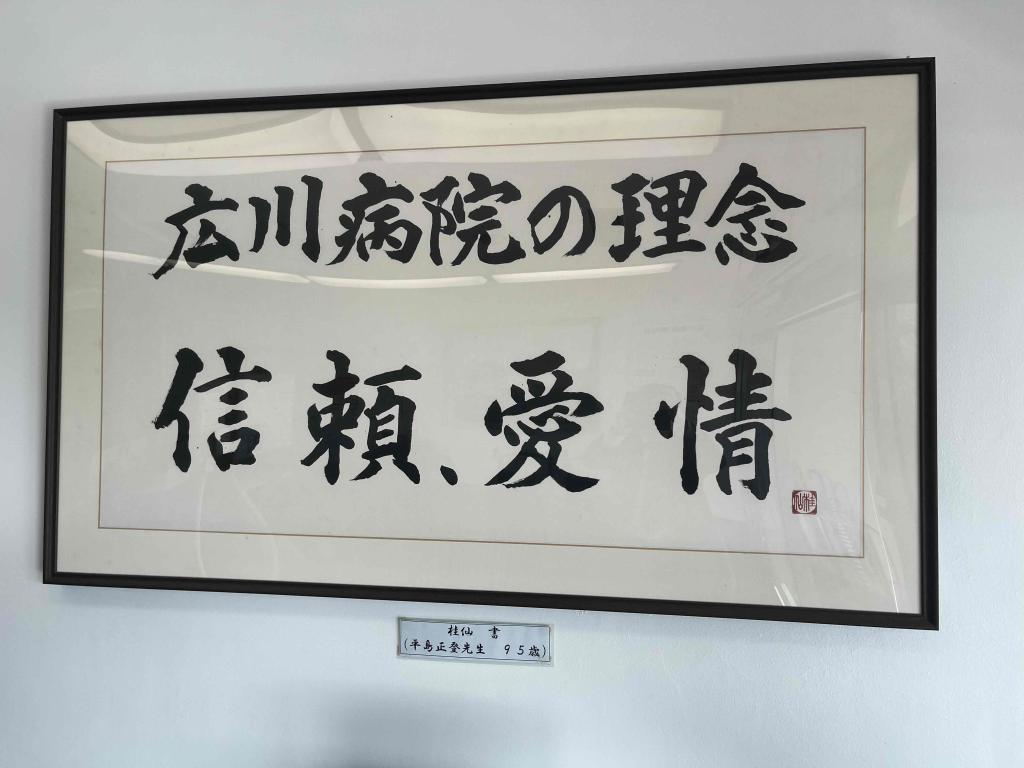 広川病院の理念
信頼、愛情
桂仙
桂仙 書
(平島正登先生 95歳)